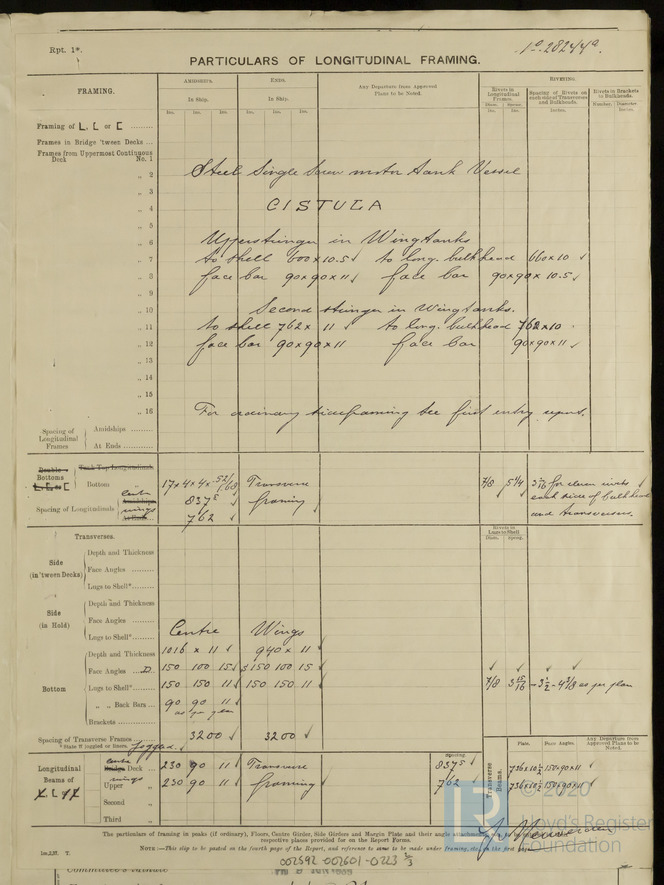 Rpt. 1*.
PARTICULARS OF LONGITUDINAL FRAMING.
FRAMING.
AMIDSHIPS.
ENDS.
In Ship.
In Ship.
Any Departure from Approved Plans to be Noted.
RIVETING.
Rivets in Longitudinal Frames.
Spacing of Rivets on each side of Transverses and Bulkheads.
Rivets in Brackets to Bulkheads.
Ins. Ins. Ins. Ins. Ins. Ins.
Diam. Spacing.
Inches.
Number. Diameter
Framing of L, C or [
Frames in Bridge 'tween Decks ...
Frames from Uppermost Continuous Deck No. 1
„ 2 Steel Single Screw motor tank Vessel
„ 3
„ 4 CISTULA
„ 5
„ 6 Upper stringer in Wingtanks
„ 7 to shell 600 x 10.5 to long. bulkhead 660 x 10
„ 8 face bar 90 x 90 x 11 face bar 90 x 90 x 10.5
„ 9
„ 10 Second stringer in Wingtanks.
„ 11 to shell 762 x 11 to long. bulkhead 762 x 10
„ 12 face bar 90 x 90 x 11 face bar 90 x 90 x 11
„ 13
„ 14
„ 15
„ 16 For ordinary side framing see first entry report.
Spacing of Longitudinal Frames
Amidships
At Ends
Double Bottoms
Tank Top Longitudinals
Bottom „ 17 x 4 x 4 x Transverse 7/8 5 1/4 for eleven rivets
Spacing of Longitudinals centre 837⁵ framing each side of bulkhead
wings 762 and transverses.
Transverses.
Rivets in Lugs to Shell
Diam. Spcng.
Side (in 'tween Decks)
Depth and Thickness
Face Angles
Lugs to Shell*
Side (in Hold)
Depth and Thickness
Face Angles
Lugs to Shell*
Centre Wings
Bottom
Depth and Thickness 1016 x 11 940 x 11
Face Angles ...D. 150 100 15 150 100 15
Lugs to Shell* 150 150 11 150 150 11 7/8 3 15/16 - 3 1/2 - 4 3/8 as per plan
„ „ Back Bars ... 90 90 11
as per plan
Brackets
Spacing of Transverse Frames ... 3200 3200
* State if joggled or liners. Joggled.
Spacing
Plate. Face Angles.
Any Departure from Approved Plans to be Noted.
Longitudinal Beams of
centre Bridge Deck ... 230 90 11 Transverse 837⁵
wings Upper „ 230 90 11 framing 762
Second „
Third „
Transverse Beams.
736 x 10½ 150 x 90 x 11
736 x 10½ 150 x 90 x 11
The particulars of framing in peaks (if ordinary), Floors, Centre Girder, Side Girders and Margin Plate and their angle attachments
respective places provided for on the Report Forms.
NOTE:—This slip to be pasted on the fourth page of the Report, and reference to same to be made under framing, etc., on the first page.
© 2020
Lloyd's Register
Foundation
LR
002592-002601-0223 1/3